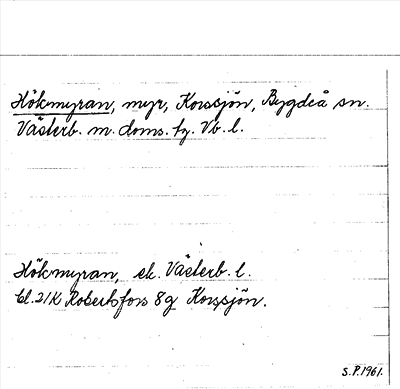 Hökmyran, myr, Korssjön, Bygdeå sn.
Västerb. m. doms. fg. Vb. l.
Hökmyran, ek. Västerb. l.
bl. 21K Robertsfors 8g Korssjön.
S.P. 1961.